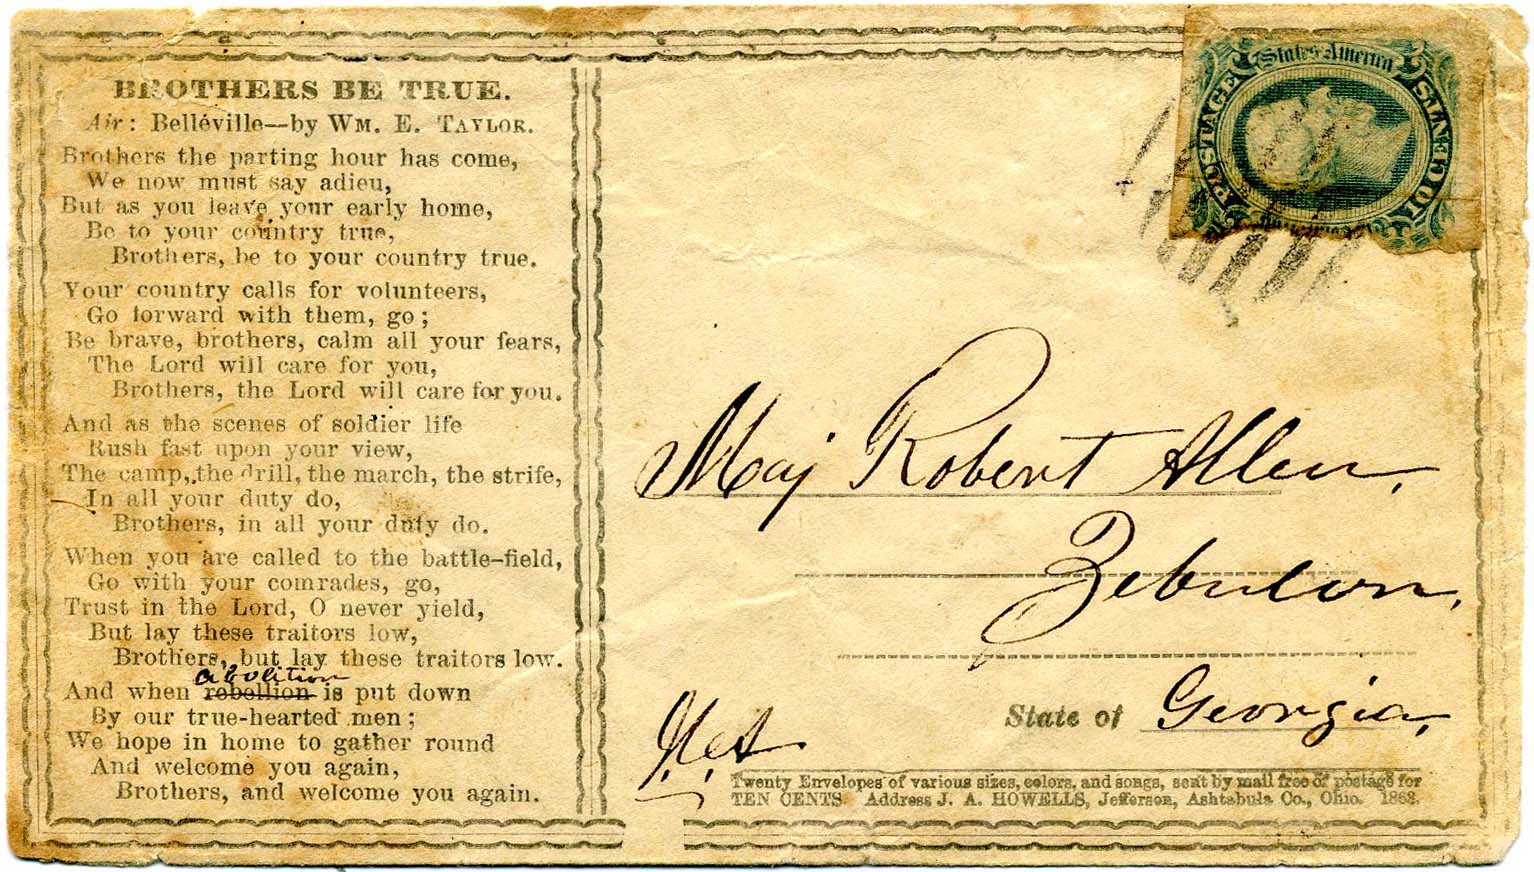 BROTHERS BE TRUE.
Air: Belléville—by WM. E. TAYLOR.
Brothers the parting hour has come,
We now must say adieu,
But as you leave your early home,
Be to your country true,
Brothers, be to your country true.
Your country calls for volunteers,
Go forward with them, go;
Be brave, brothers, calm all your fears,
The Lord will care for you,
Brothers, the Lord will care for you.
And as the scenes of soldier life
Rush fast upon your view,
The camp, the drill, the march, the strife,
In all your duty do,
Brothers, in all your duty do.
When you are called to the battle-field,
Go with your comrades, go,
Trust in the Lord, O never yield,
But lay these traitors low,
Brothers, but lay these traitors low.
abolition
And when rebellion is put down
By our true-hearted men;
We hope in home to gather round
And welcome you again,
Brothers, and welcome you again.
States America
POSTAGE
TEN CENTS
Maj Robert Allen,
Zebulon,
State of Georgia,
Twenty Envelopes of various sizes, colors, and songs, sent by mail free of postage for
TEN CENTS. Address J. A. HOWELLS, Jefferson, Ashtabula Co., Ohio. 1862.